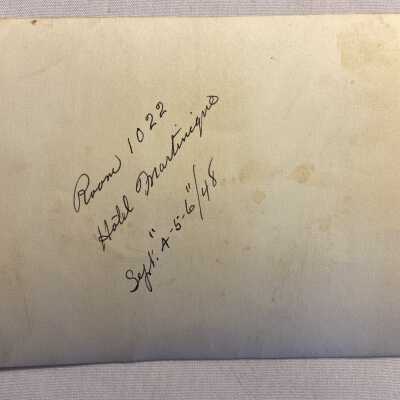 Room 1022
Hotel Martinique
Sept. "4-5-6"/48